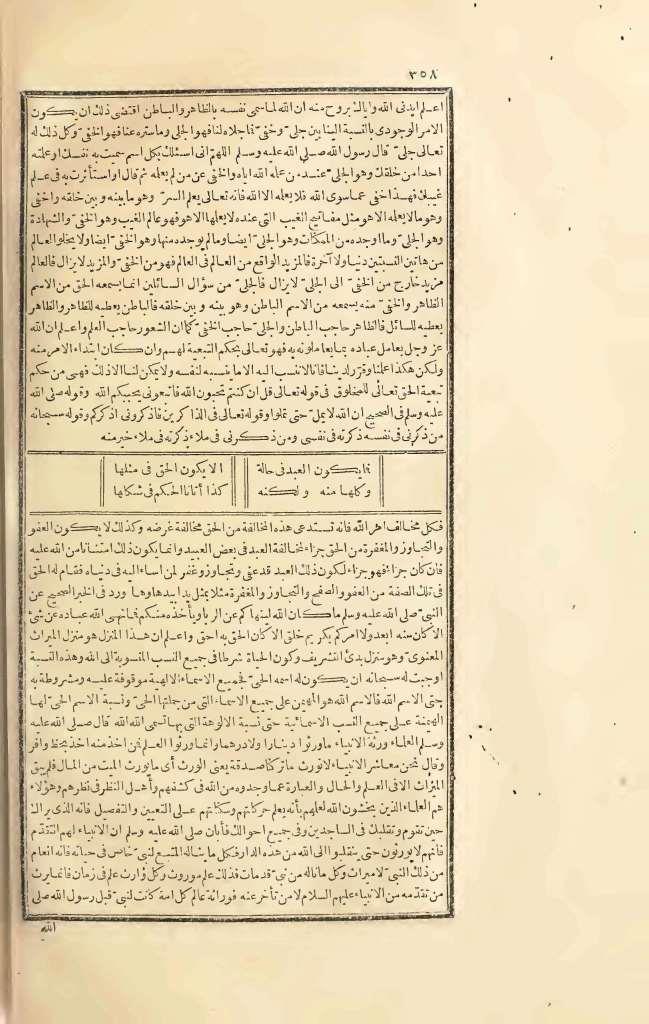 ٣٥٨
اعلم ايدنى الله واياك بروح منه ان الله لما سمى نفسه بالظاهر والباطن اقتضى ذلك ان يكون
الامر الوجودى بالنسبة الينا بين جلىّ وخفىّ فما جلاه لنا فهو الجلى وما ستره عنا فهو الخفىّ وكل ذلك له
تعالى جلىّ قال رسول الله صلى الله عليه وسلم اللهم انى اسئلك بكل اسم سميت به نفسك او علمته
احدا من خلقك وهو الجلىّ عند من علمه الله اياه والخفى عن من لم يعلمه ثم قال او استأثرت به فى علم
غيبك فهذا خفى عما سوى الله فلا يعلمه الا الله فانه تعالى يعلم السرّ وهو ما بينه وبين خلقه واخفى
وهو ما لا يعلمه الا هو مثل مفاتيح الغيب التى عنده لا يعلمها الا هو فهو عالم الغيب وهو الخفىّ والشهادة
وهو الجلىّ وما اوجده من الممكنات وهو الجلىّ ايضا وما لم يوجده منها وهو الخفىّ ايضا ولا يخلو العالم
من هاتين النسبتين دنيا ولا آخرة فالمزيد الواقع من العالم فى العالم فهو من الخفىّ والمزيد لا يزال فالعالم
مزيد خارج من الخفىّ الى الجلىّ لا يزال فالجلىّ من سؤال السائلين انما يسمعه الحق من الاسم
الظاهر والخفىّ منه يسمعه من الاسم الباطن وهو بينه وبين خلقه فالباطن يعطيه للظاهر والظاهر
يعطيه للسائل فالظاهر حاجب الباطن والجلىّ حاجب الخفىّ كما ان الشعور حاجب العلم واعلم ان الله
عز وجل يعامل عباده بما يعاملونه به فهو تعالى بحكم التبعية لهم وان كان ابتداء الامر منه
ولكن هكذا اعلمنا وقرّر لدينا فانا لا ننسب اليه الا ما ينسبه لنفسه ولا يمكن لنا الا ذلك فهى من حكم
تبعية الحق تعالى للمخلوق فى قوله تعالى قل ان كنتم تحبون الله فاتبعونى يحببكم الله وقوله صلى الله
عليه وسلم فى الصحيح ان الله لا يملّ حتى تملوا وقوله تعالى فى الذاكرين فاذكرونى اذكركم وقوله سبحانه
من ذكرنى فى نفسه ذكرته فى نفسى ومن ذكرنى فى ملاء ذكرته فى ملاء خير منه
فما يكون العبد فى حالة الا يكون الحق فى مثلها
وكلها منه ولكنه كذا أتانا الحكم فى شكلها
فكل مخالف امر الله فانه تستدعى هذه المخالفة من الحق مخالفة غرضه وكذلك لا يكون العفو
والتجاوز والمغفرة من الحق جزاء لمخالفة العبد فى بعض العبيد وانما يكون ذلك امتنانا من الله عليه
فان كان جزاء فهو جزاء لكون ذلك العبد قد عفى وتجاوز وغفر لمن اساء اليه فى دنياه فقام له الحق
فى تلك الصفة من العفو والصفح والتجاوز والمغفرة مثلا بمثل يد ابيد هاوها ورد فى الخبر الصحيح عن
النبىّ صلى الله عليه وسلم ما كان الله لينهاكم عن الربا ويأخذه منكم فما نهى الله عباده عن شئ
الا كان منه ابعد ولا امركم بكريم خلق الا كان الحق به احق واعلم ان هذا المنزل هو منزل الميراث
المعنوى وهو منزل بدئ التشريف وكون الحياة شرطا فى جميع النسب المنسوبة الى الله وهذه النسبة
اوجبت له سبحانه ان يكون له اسمه الحىّ فجميع الاسماء الالهية موقوفة عليه ومشروطة به
حتى الاسم الله فالاسم الله هو المهيمن على جميع الاسماء التى من جملتها الحىّ ونسبة الاسم الحىّ لها
المهيمنة على جميع النسب الاسمائية حتى نسبة الالوهة التى بها تسمى الله الله قال صلى الله عليه
وسلم العلماء ورثة الانبياء ما ورثوا دينارا ولا درهما وانما ورثوا العلم فمن اخذ منه اخذ بحظ وافر
وقال نحن معاشر الانبياء لا نورث ما تركنا صدقة يعنى الورث أى ما يورث الميت من المال فلم يبق
الميراث الا فى العلم والحال والعبارة عما وجدوه من الله فى كشفهم وأهل النظر فى نظرهم وهؤلاء
هم العلماء الذين يخشون الله لعلمهم بأنه يعلم حركاتهم وسكناتهم على التعيين والتفصيل فانه الذى يراك
حين تقوم وتقلبك فى الساجدين وفى جميع احوالك فأبان صلى الله عليه وسلم ان الانبياء لهم التقدّم
فانهم لا يورثون حتى ينقلبوا الى الله من هذه الدار فكل ما يناله المتبع لنبىّ خاص فى حياته فانه انعام
من ذلك النبىّ لا ميراث وكل ما ناله من نبىّ قد مات فذلك علم موروث وكل وارث علم فى زمان فانما يرث
من تقدّمه من الانبياء عليهم السلام لا من تأخر عنه فوراثة عالم كل امة كانت لنبىّ قبل رسول الله صلى
الله